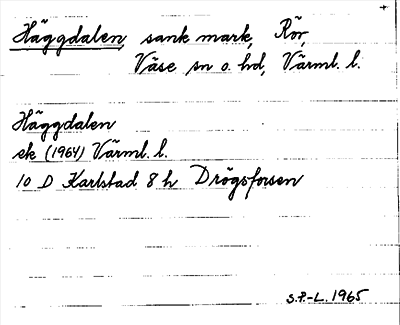 Häggdalen, sank mark, Rör,
Väse sn o. hd, Värml. l.
Häggdalen
ek (1964) Värml. l.
10 D Karlstad 8 h Drögsforsen
S.P.-L. 1965